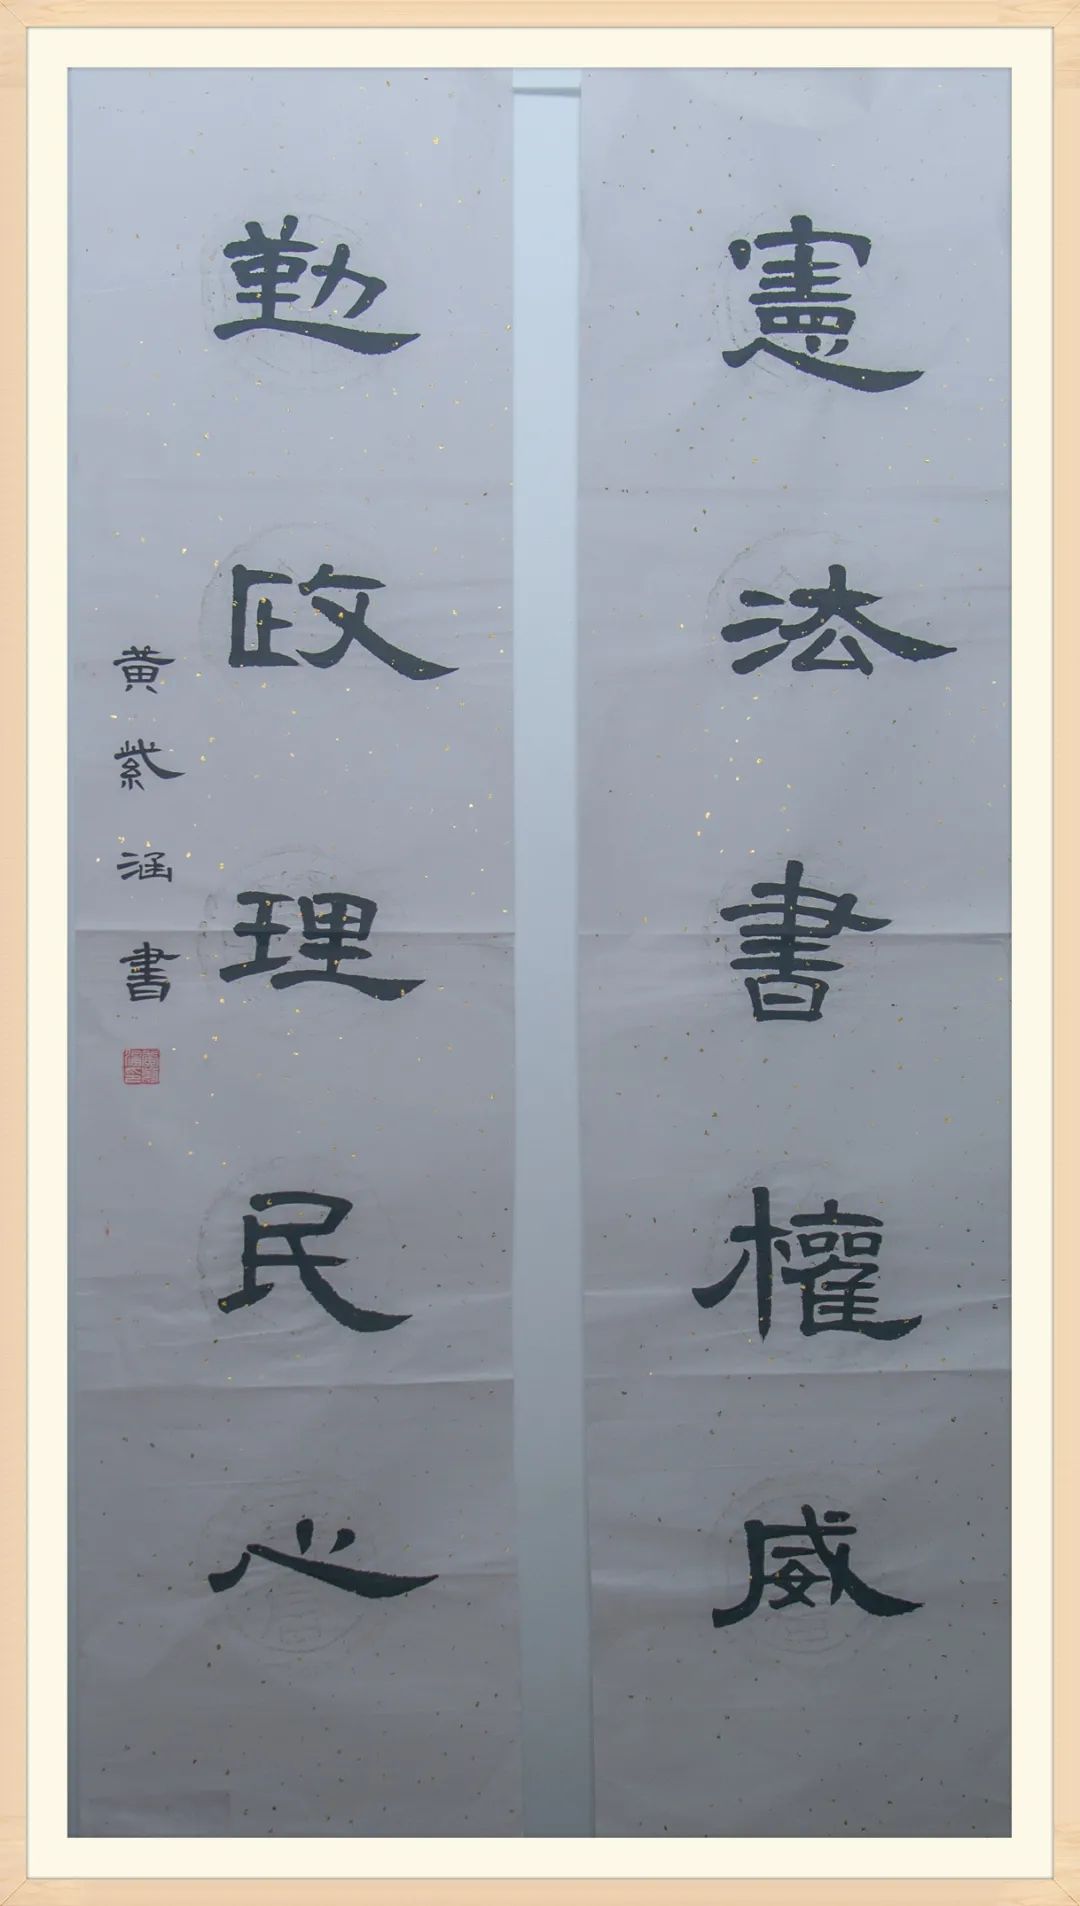 憲法書權威
勤政理民心
黃紫涵書